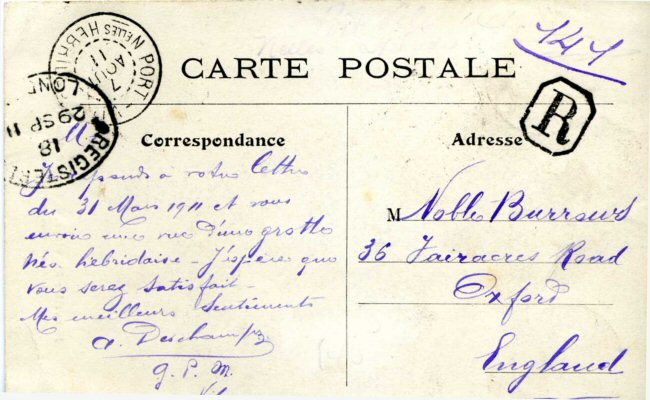 141
CARTE POSTALE
PORT-
NELLES HEBRIDES
7
AOUT
11
REGISTERED
LOND
29 SP 11
18
R
Correspondance
M
Je réponds a votre lettre
du 31 Mars 1911 et vous
envoie une vue d'une grotte
Néo hébridaise - J'espère que
vous serez satisfait -
Mes meilleurs sentiments
A. Deschamps
G. P. M.
Adresse
M Noble Burrows
36 Fairacres Road
Oxford
England